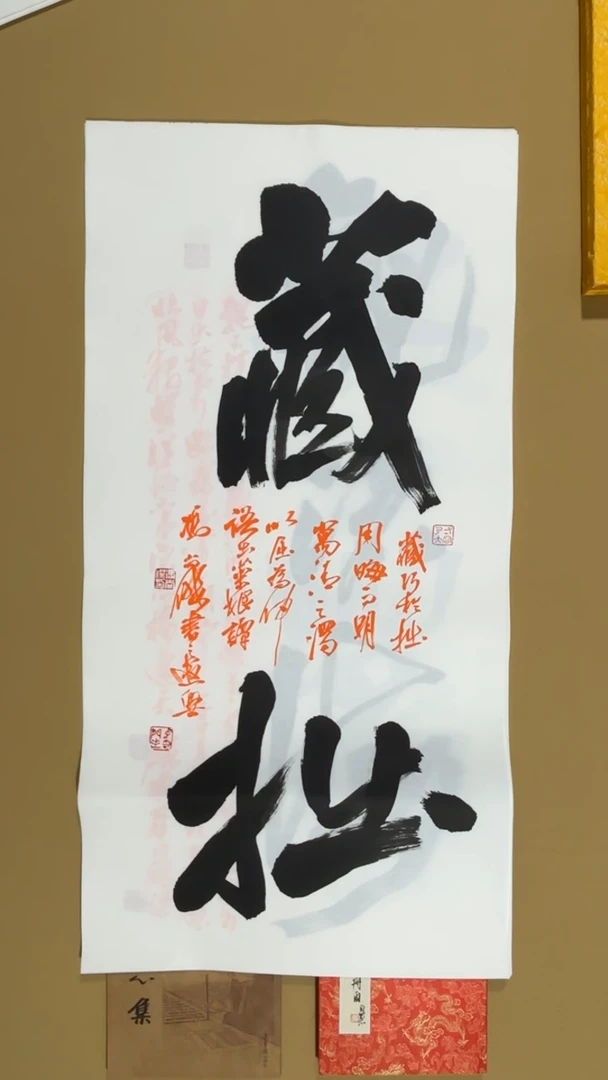 藏
拙
藏巧於拙
用晦而明
寓清之濁
以屈為伸
語出菜根譚
書遣興
集